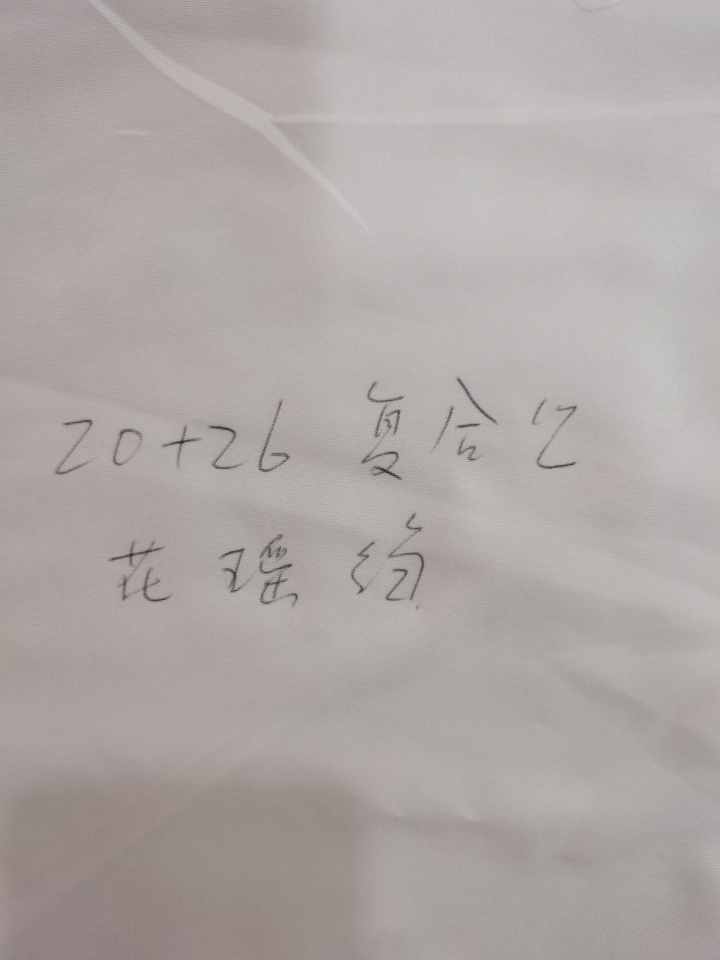 20+26 复合亿
花瑶绉